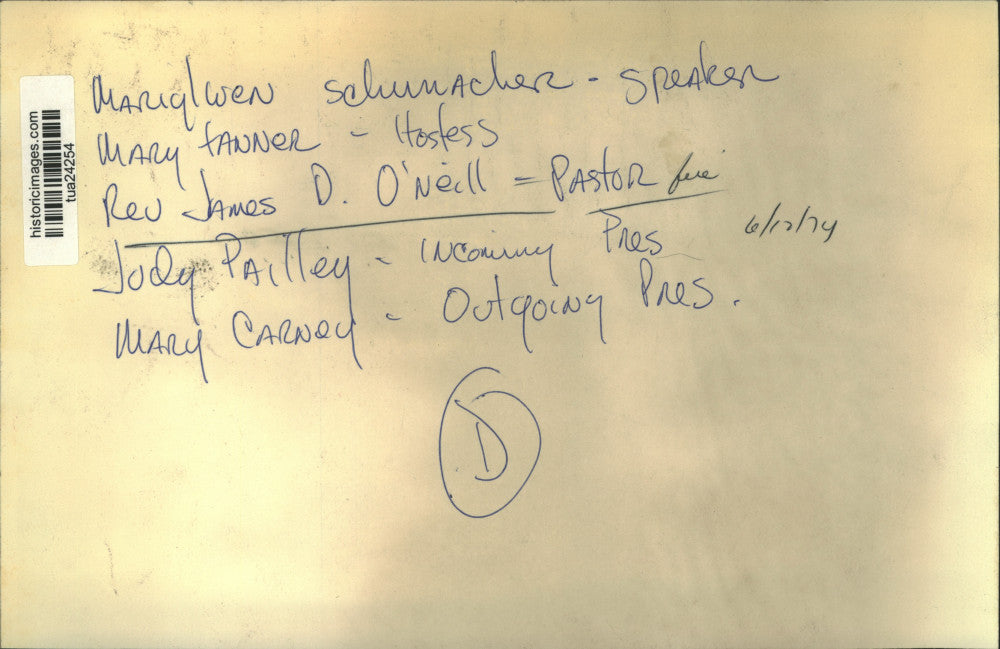 historicimages.com
tua24254
Mariglwen Schumacher - Speaker
Mary Tanner - Hostess
Rev James D. O'Neill = Pastor
Judy Pailley - Incoming Pres
6/12/74
Mary Carney - Outgoing Pres.
D